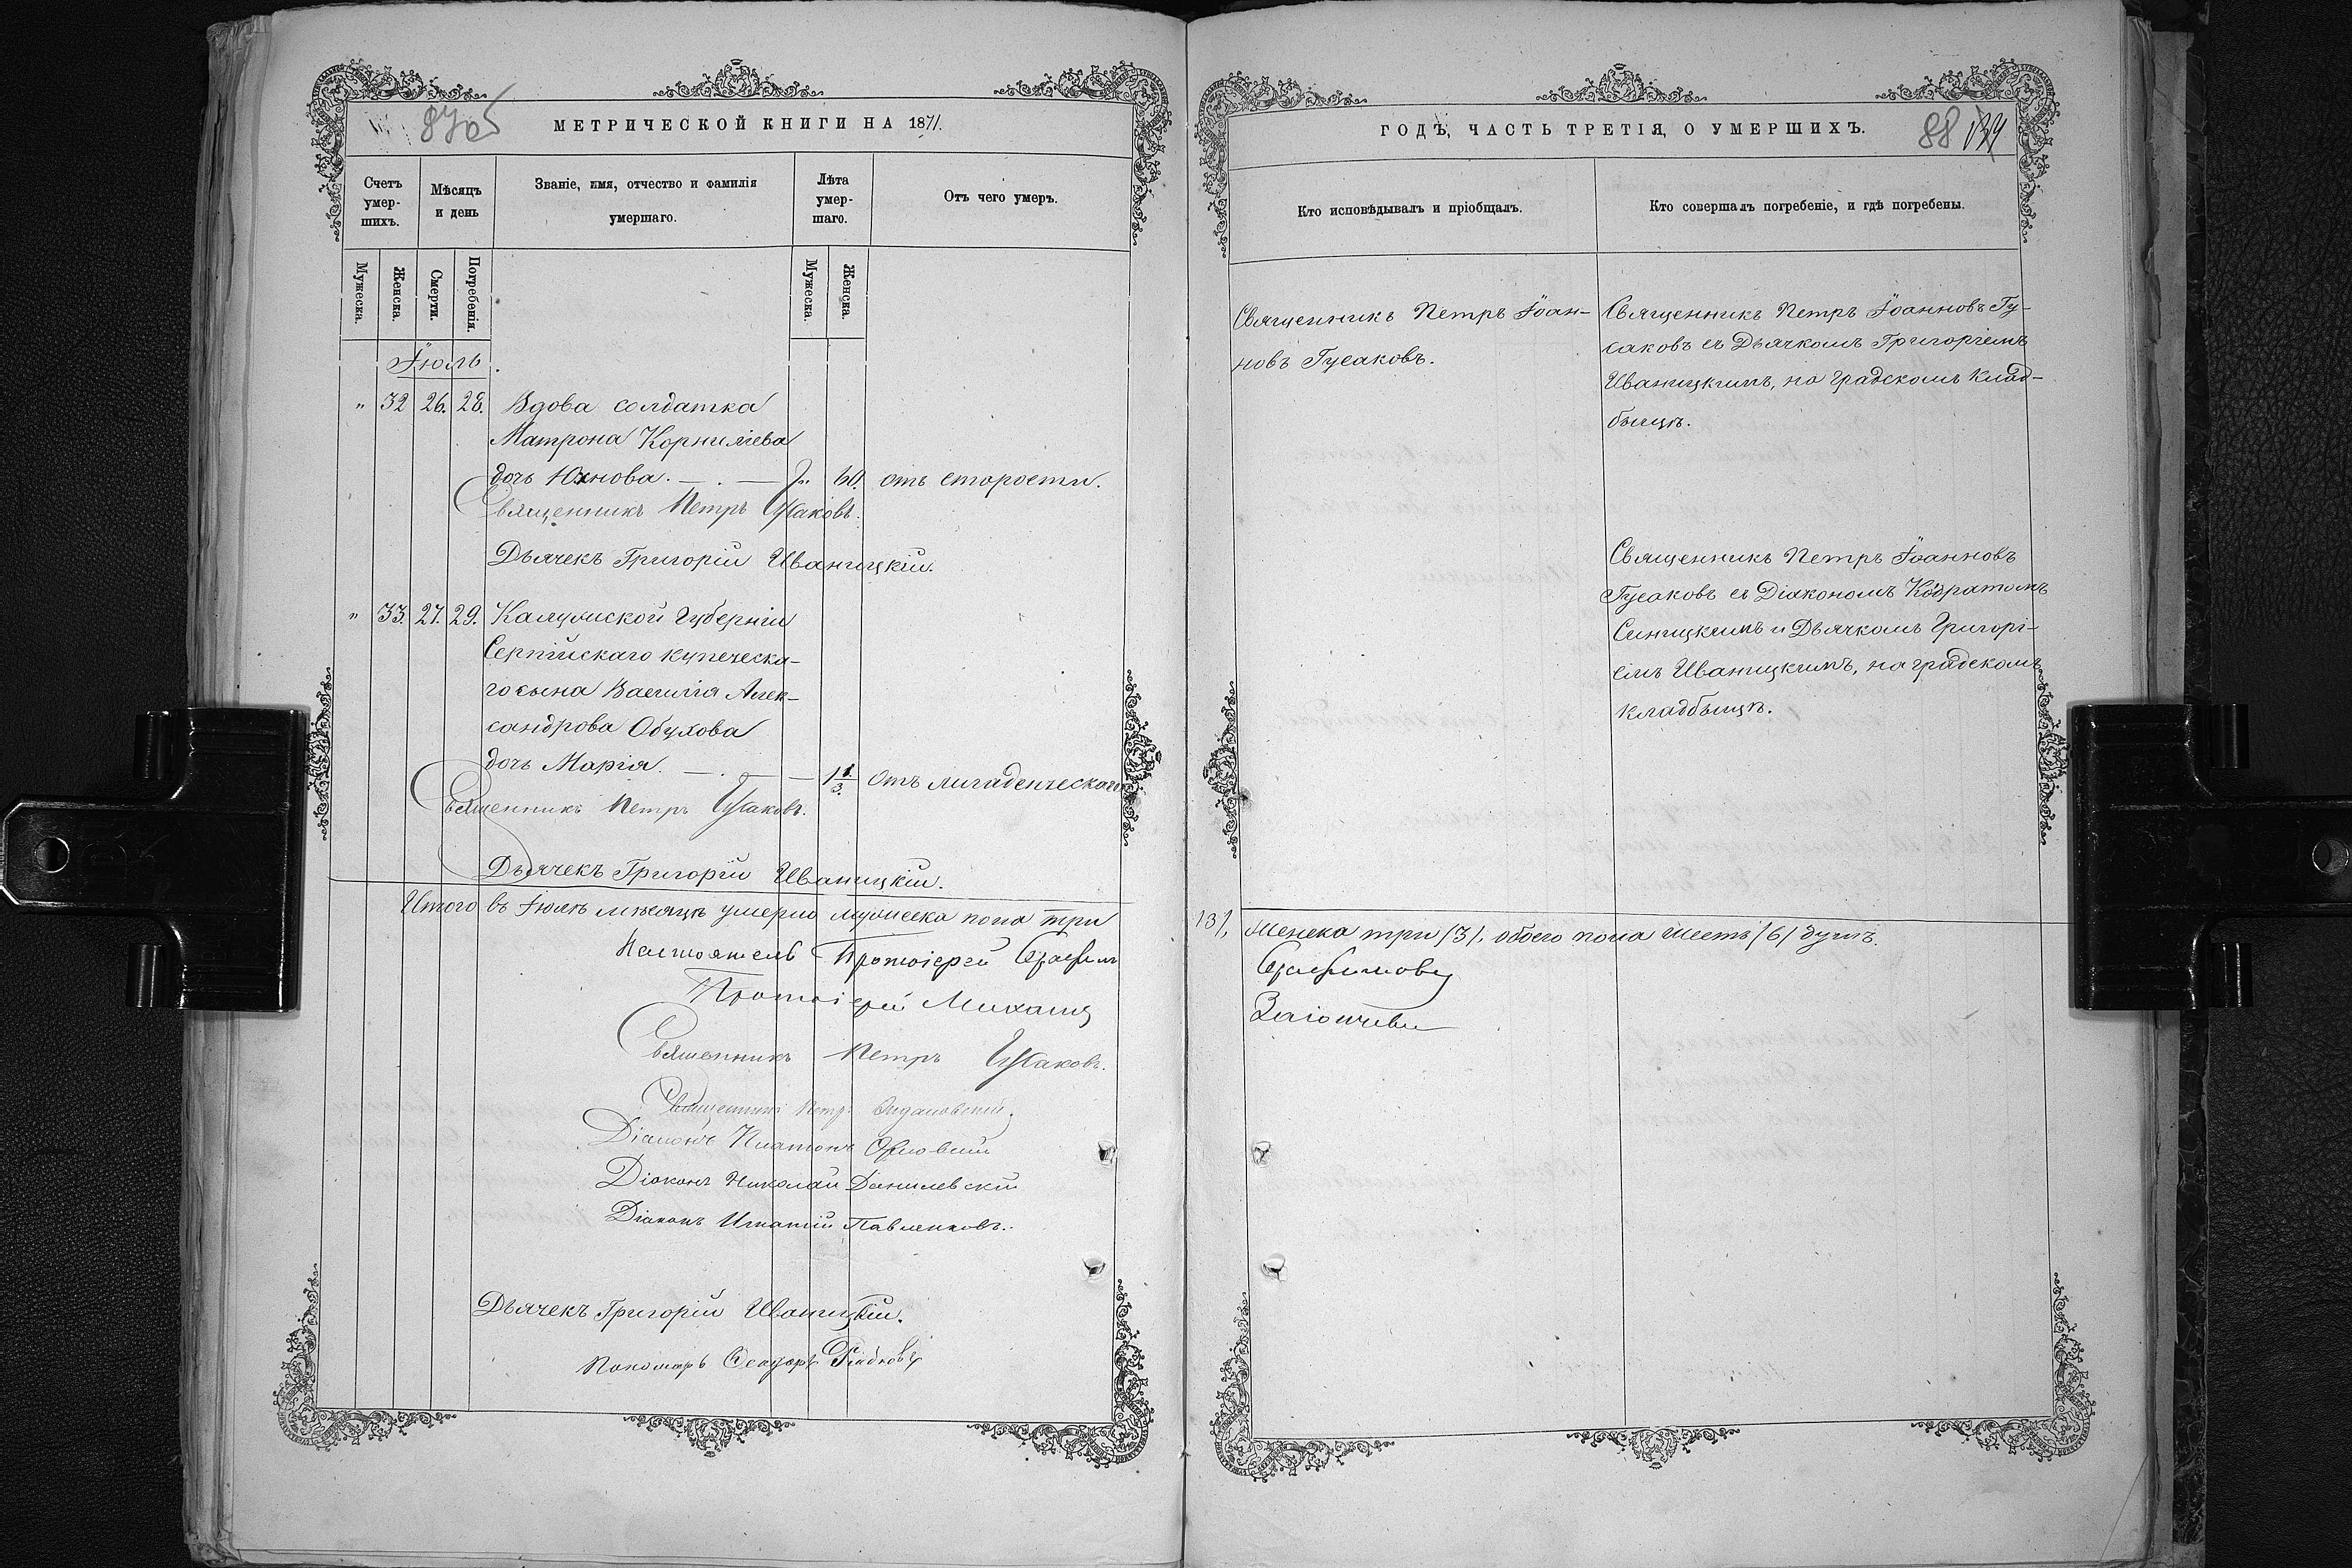 87об
МЕТРИЧЕСКОЙ КНИГИ НА 1871.
Счетъ умер-шихъ.
Мѣсяцъ и день
Званіе, имя, отчество и фамилія умершаго.
Лѣта умер-шаго.
Отъ чего умеръ.
Мужеска.
Женска.
Смерти.
Погребенія.
Мужеска.
Женска.
Іюль.
" 32 26. 28. Вдова солдатка
Матрона Корниліева
дочь Юхнова. — . — " 60. отъ старости.
Священникъ Петръ Гусаковъ.
Дьячекъ Григорій Иваницкій.
" 33. 27. 29. Калужской Губерніи
Серпѣйскаго купеческа-
го сына Василія Алек-
сандрова Обухова
дочь Марія. — . — — 1 1/3. Отъ младенческаго
Священникъ Петръ Гусаковъ.
Дьячекъ Григорій Иваницкій.
Итого въ Іюлѣ мѣсяцѣ умерло мужеска пола три
Настоятель Протоіерей
Протоіерей Михаилъ
Священникъ Петръ Гусаковъ.
Священникъ Петръ
Діаконъ Платонъ Орловскій
Діаконъ Николай Данилевскій
Діаконъ Игнатій Павленковъ.
Дьячекъ Григорій Иваницкій.
Пономарь
ГОДЪ, ЧАСТЬ ТРЕТІЯ, О УМЕРШИХЪ.
88
Кто исповѣдывалъ и пріобщалъ.
Кто совершалъ погребеніе, и гдѣ погребены.
Священникъ Петръ Іоан-
новъ Гусаковъ.
Священникъ Петръ Іоанновъ Гу-
саковъ съ Дьячкомъ Григоріемъ
Иваницкимъ, на градскомъ клад-
бищѣ.
Священникъ Петръ Іоанновъ
Гусаковъ съ Діакономъ Кодратомъ
Синицкимъ и Дьячкомъ Григорі-
емъ Иваницкимъ, на градскомъ
кладбищѣ.
/3/, женска три /3/, обоего пола шесть /6/ душъ.